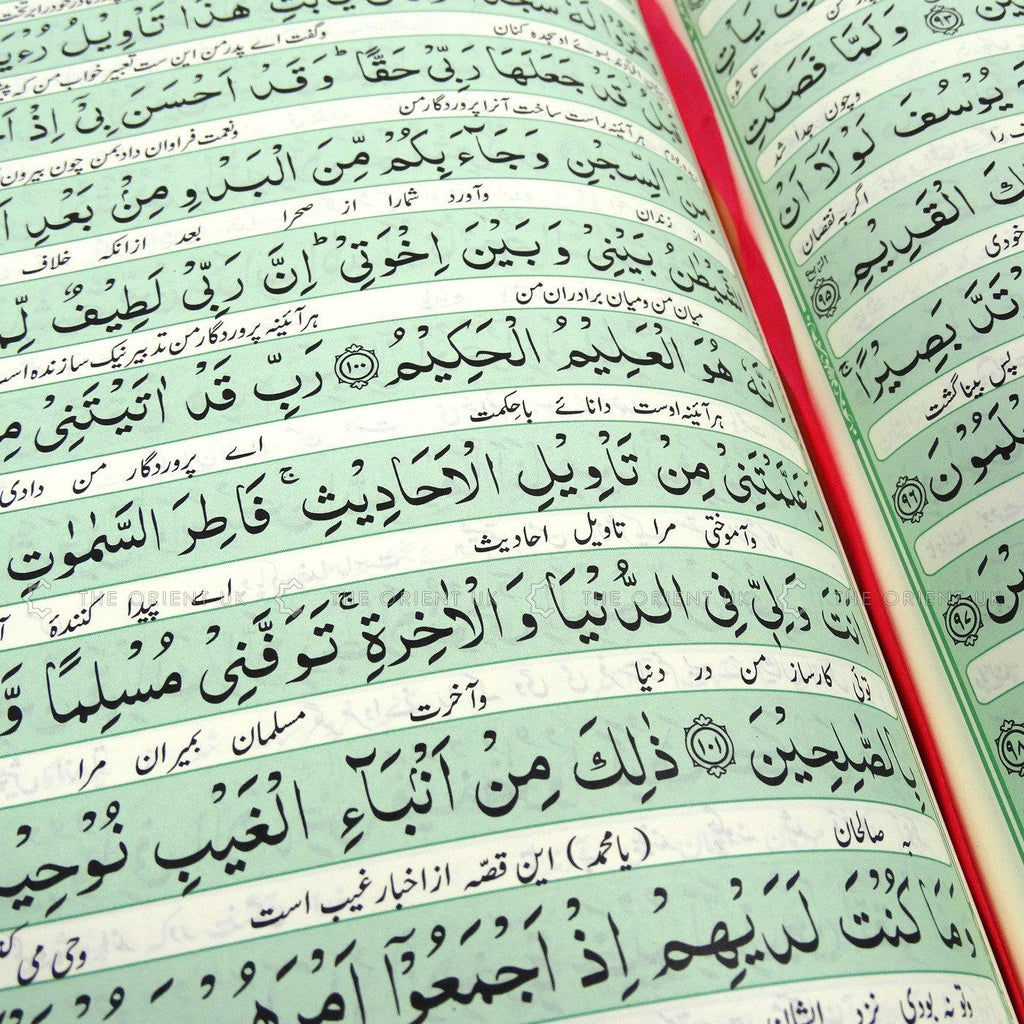 هٰذَا تَاْوِيْلُ
وگفت اے پدر من این ست تعبیر خواب من
قَدْ جَعَلَهَا رَبِّيْ حَقًّا ؕ وَقَدْ اَحْسَنَ بِيْۤ اِذْ
هر آئینہ راست ساخت آنرا پروردگار من ونعمت فراوان داد بمن چون بیرون
مِنَ السِّجْنِ وَجَآءَ بِكُمْ مِّنَ الْبَدْوِ مِنْۢ بَعْدِ
از زندان وآورد شمارا از صحرا بعد ازانکہ خلاف
الشَّيْطٰنُ بَيْنِيْ وَبَيْنَ اِخْوَتِيْ ؕ اِنَّ رَبِّيْ لَطِيْفٌ
میان من ومیان برادران من هر آئینہ پروردگار من تدبیر نیک سازنده
اِنَّهٗ هُوَ الْعَلِيْمُ الْحَكِيْمُ ۝۱۰۰ رَبِّ قَدْ اٰتَيْتَنِيْ
هر آئینہ اوست دانائے باحکمت اے پروردگار من دادی
وَعَلَّمْتَنِيْ مِنْ تَاْوِيْلِ الْاَحَادِيْثِ ۚ فَاطِرَ السَّمٰوٰتِ
وآموختی مرا تاویل احادیث اے پیدا کنندۀ
اَنْتَ وَلِيّٖ فِي الدُّنْيَا وَالْاٰخِرَةِ ۚ تَوَفَّنِيْ مُسْلِمًا وَّ
توئی کارساز من در دنیا وآخرت مسلمان بمیران مرا
بِالصّٰلِحِيْنَ ۝۱۰۱ ذٰلِكَ مِنْ اَنْۢبَآءِ الْغَيْبِ
بہ صالحان (یا محمد) این قصّہ از اخبار غیب است وحی می
وَمَا كُنْتَ لَدَيْهِمْ اِذْ اَجْمَعُوْۤا اَمْرَهُمْ
وتو نہ بودی نزد ایشان
۹۳ وَلَمَّا فَصَلَتِ
وچون جدا شد
يُوْسُفَ لَوْلَاۤ اَنْ
اگر بہ نقصان
الْقَدِيْمِ ۝۹۵
بَصِيْرًا ۚ
پس بینا گشت
۹۶
۹۷
۹۸
THE ORIENT UK THE ORIENT UK THE ORIENT UK THE ORIENT UK